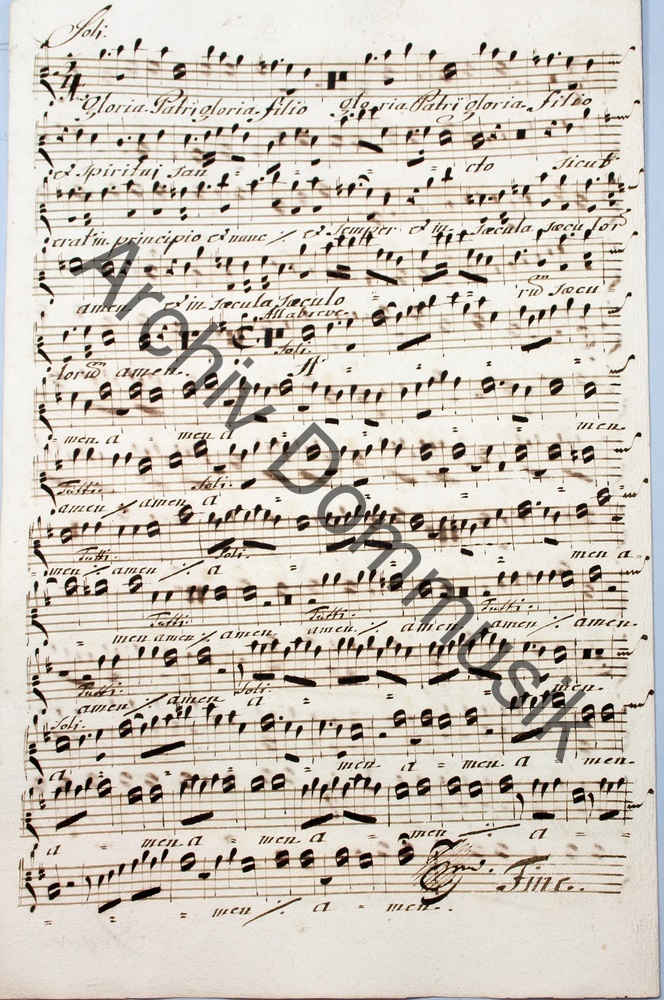 Soli.
3/4
Gloria Patri gloria filio gloria Patri gloria filio
et spiritui san = = = cto sicut
erat in principio et nunc ⁒ et semper et in = sæcula sæculorũ
amen et in sæcula sæculo = = = rũ sæcu
Allabreve.
Soli.
lorũ amen.. A = = =
= men a = men a = = = men
Tutti. Soli.
amen ⁒ amen a = = = =
Tutti. Soli.
men ⁒ amen ⁒ a = = = = men a
Tutti. Tutti. Tutti.
= men amen ⁒ amen. amen ⁒ amen amen ⁒ amen.
Tutti. Soli.
amen ⁒ amen a = = = men.
Soli.
a = = = men a = men a men
a men a = men a = men ⁒ a =
= = = men ⁒ a = men..
Fine.
Archiv Dommusik